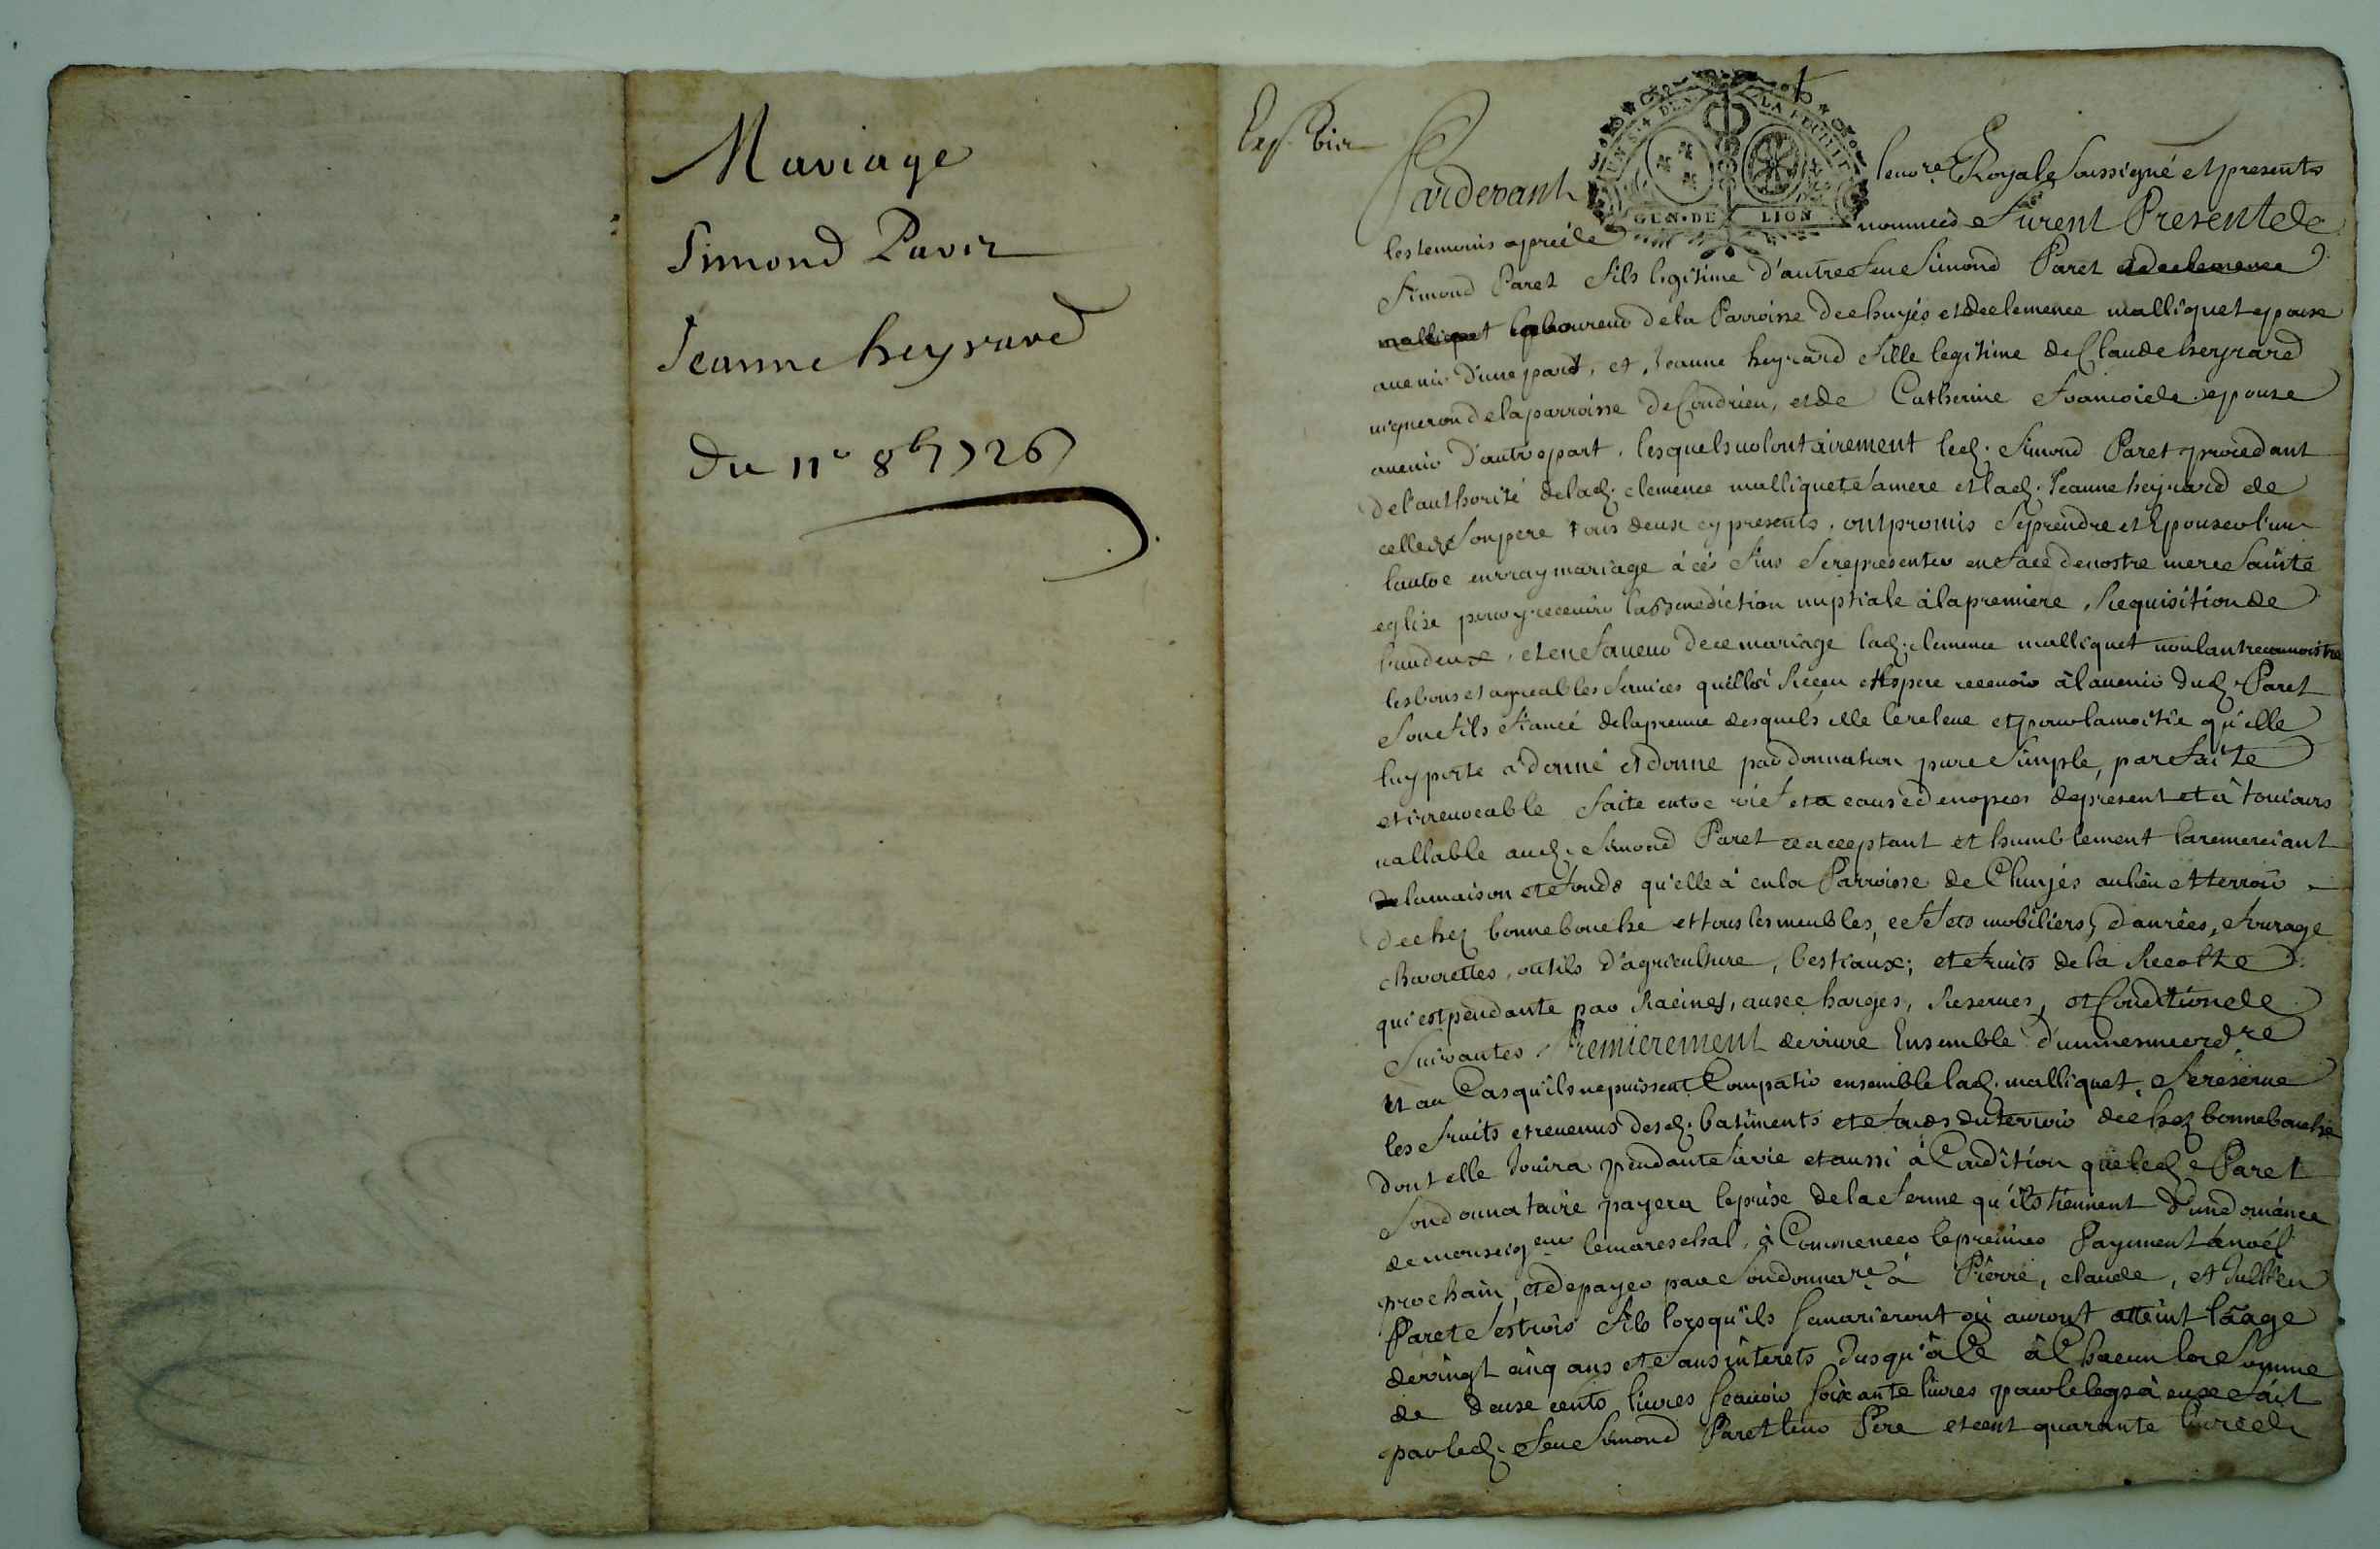 Mariage
Simond Paret
Jeanne heyrard
Du 11e 8b 1726
Pardevant le no.re Royale soussigné et presents
GEN · DE LION
les temoins apres nommés furent Presents
Simond Paret fils legitime d'autre feu Simond Paret et de clemence
malliquet laboureur de la Parroisse de chuyés et de clemence malliquet epoux
avenir d'une part, et Jeanne heyrard fille legitime de Claude heyrard
vigneron de la parroisse de Condrieu, et de Catherine epouse
avenir d'autre part, lesquels volontairement led. Simond Paret procedant
de l'authorité de lad. clemence malliquet sa mere et lad. Jeanne heyrard de
celle de son pere tous deux cy presents, ont promis se prendre et Epouser l'un
l'autre en vray mariage à ces fins se representer en face de nostre mere Sainte
eglise pour y recevoir la Benediction nuptiale à la premiere Requisition de
l'un deux, et en faveur de ce mariage lad. clemence malliquet voulant reconnoistre
les bons et agreables services qu'elle à Receu et Espere recevoir à l'avenir dud. Paret
son fils fiancé de la preuve desquels elle le releve et pour l'amoitié qu'elle
luy porte a donné et donne par donnation pure simple, parfaite
et irrevocable faite entre vifs et a cause de nopces de present et à toujours
vallable aud. Simond Paret ce acceptant et humblement la remerciant
de la maison et fonds qu'elle à en la Parroisse de Chuyés au lieu et terroir
de chez bonnebouche et tous les meubles, effets mobiliers, danrées, fourage
charrettes, outils d'agriculture, bestiaux; et fruits de la Recolte
qui est pendante par Racines, aux charges, Reserves, et Conditions
suivantes. Premierement de vivre Ensemble d'un mesme ordre
Et au Cas qu'ils ne puissent Compatir ensemble lad. malliquet se reserve
les fruits et revenus desd. batiments et fonds du terroir de chez bonnebouche
dont elle Jouira pendant sa vie et aussi à Condition que led. Paret
son donnataire payera le prise de la ferme qu'ils tiennent d'un domaine
de monseigeur le mareschal, à Commencer le premier Payement à noël
prochain, et de payer par son donnare à Pierre, claude, et Jullien
Paret ses trois fils lorsqu'ils se marieront ou auront atteint l'aage
de vingt cinq ans et sans interets Jusqu'à ce à Chacun la somme
de deux cents livres scavoir soixante livres pour le legs à eux fait
par led. feu Simond Paret leur Pere et cent quarante livres